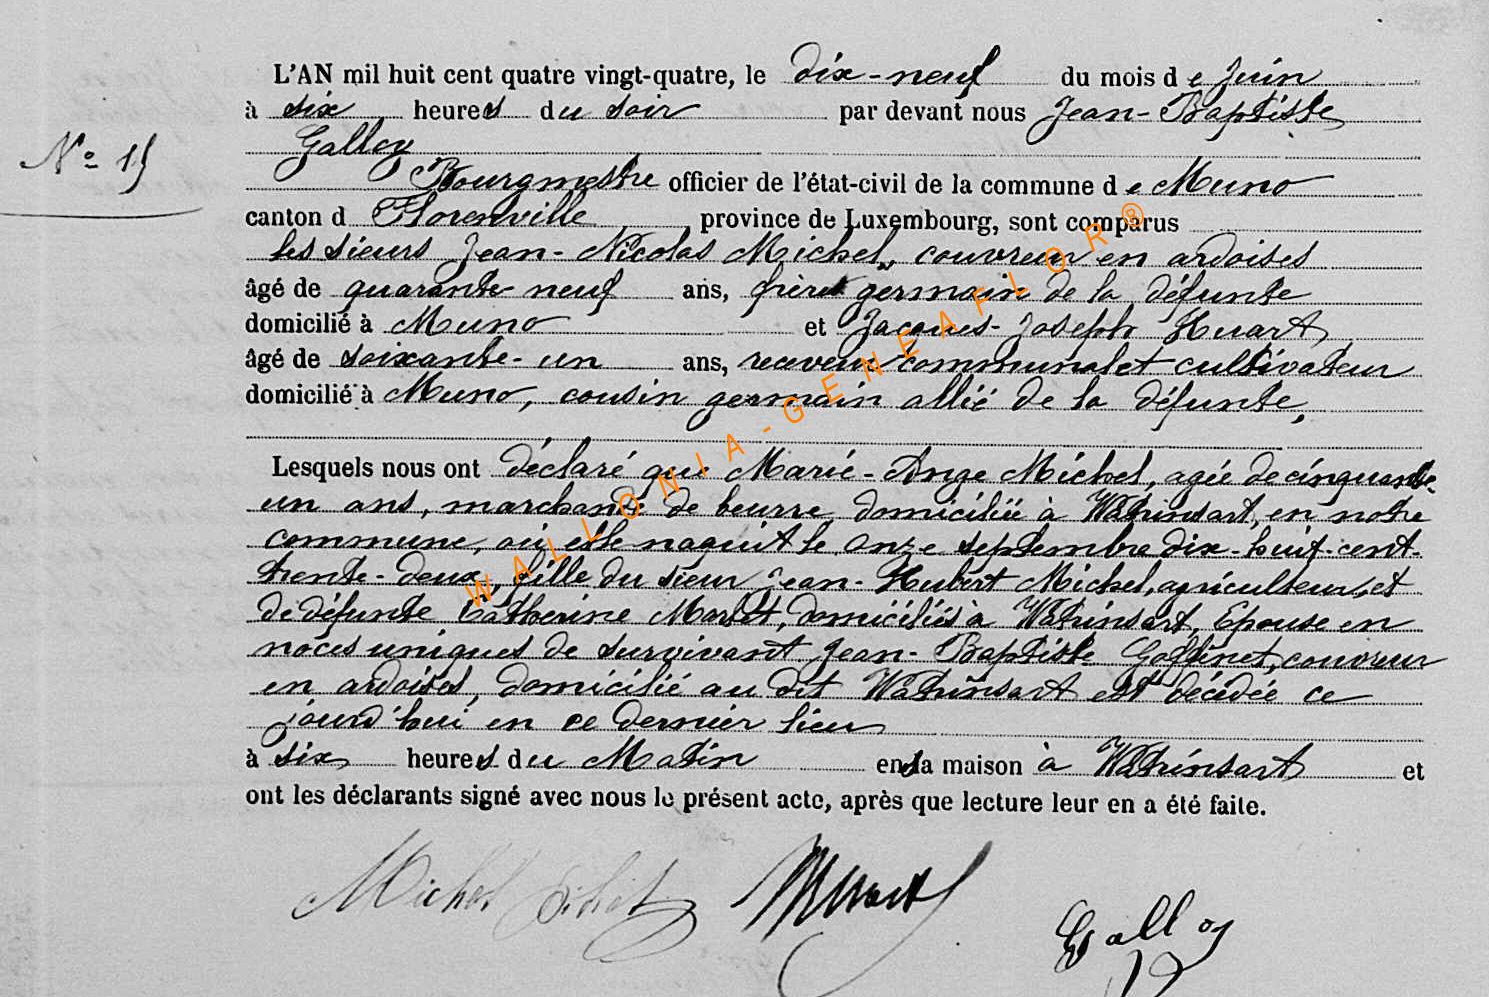 L'AN mil huit cent quatre vingt-quatre, le dix-neuf du mois de Juin
à six heures du soir par devant nous Jean-Baptiste
Nº 15
Galloy
Bourgmestre officier de l'état-civil de la commune de Muno
canton d Florenville province de Luxembourg, sont comparus
les sieurs Jean-Nicolas Michel, couvreur en ardoises
âgé de quarante-neuf ans, frère germain de la défunte
domicilié à Muno et Jacques-Joseph Huart
âgé de soixante-un ans, receveur communal et cultivateur
domicilié à Muno, cousin germain allié de la défunte,
Lesquels nous ont déclaré que Marie-Ange Michel, agée de cinquante-
un ans, marchande de beurre domiciliée à Watrinsart, en notre
commune, où elle naquit le onze septembre dix-huit-cent-
trente-deux, fille du sieur Jean-Hubert Michel, agriculteur, et
de défunte Catherine domiciliés à Watrinsart, Epouse en
noces uniques de survivant Jean-Baptiste Goffinet, couvreur
en ardoises, domicilié au dit Watrinsart est décédée ce
jourd'hui en ce dernier lieu
à six heures du Matin en sa maison à Watrinsart et
ont les déclarants signé avec nous le présent acte, après que lecture leur en a été faite.
Michel Huart
Galloy
WALLONIA-GENEAFLOR®